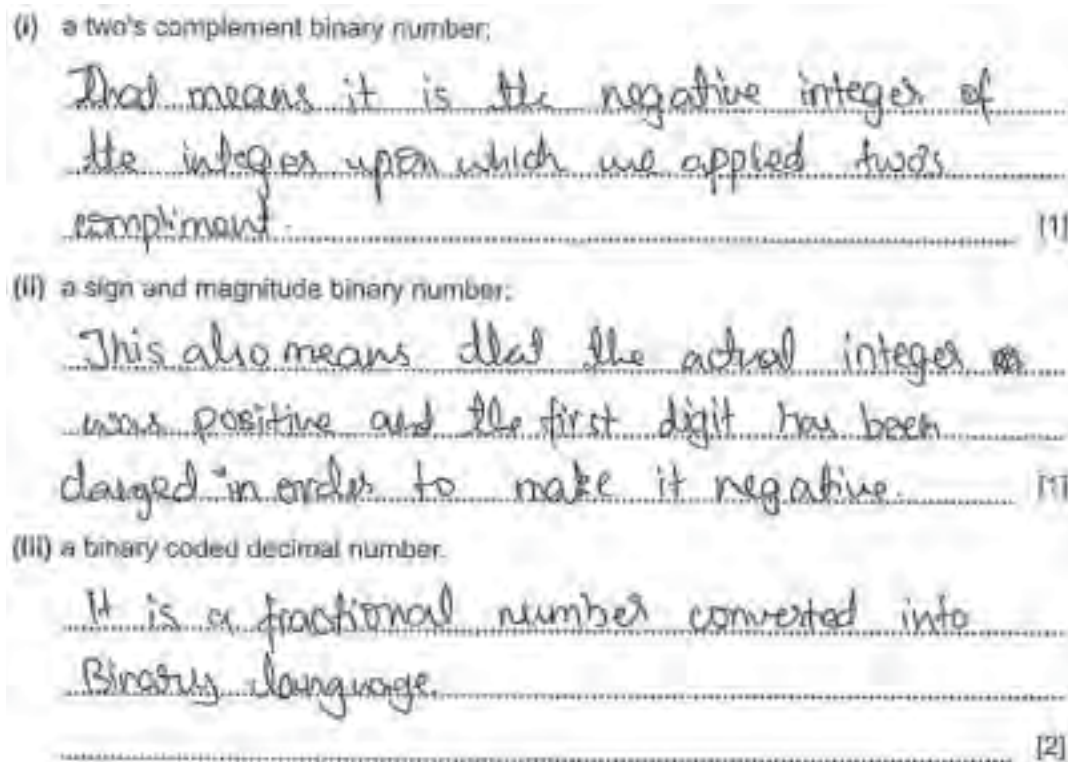 (i) a two's complement binary number;
That means it is the negative integer of
the integer upon which we applied two's
compliment. [1]
(ii) a sign and magnitude binary number;
This also means that the actual integer
was positive and the first digit has been
changed in order to make it negative. [1]
(iii) a binary coded decimal number.
It is a fractional number converted into
Binary language.
[2]